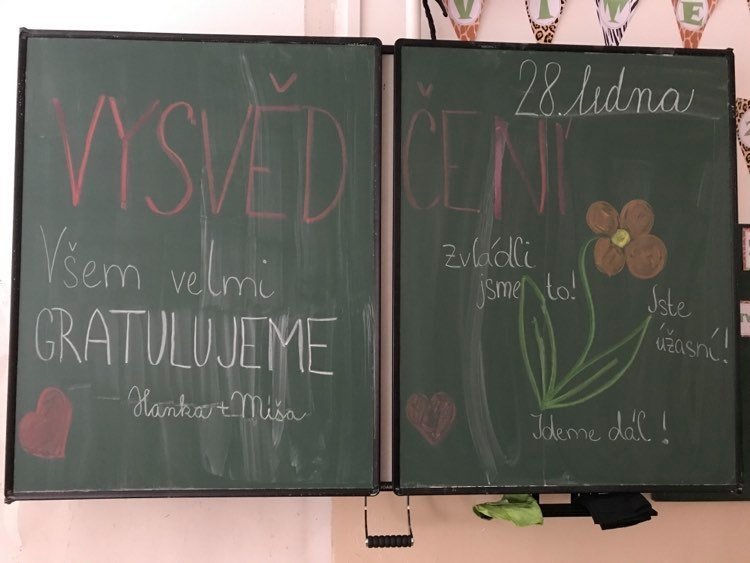 28. ledna
VYSVĚDČENÍ
Všem velmi
GRATULUJEME
Hanka + Míša
zvládli
jsme to!
Jste
úžasní!
Jdeme dál!
VÍTE